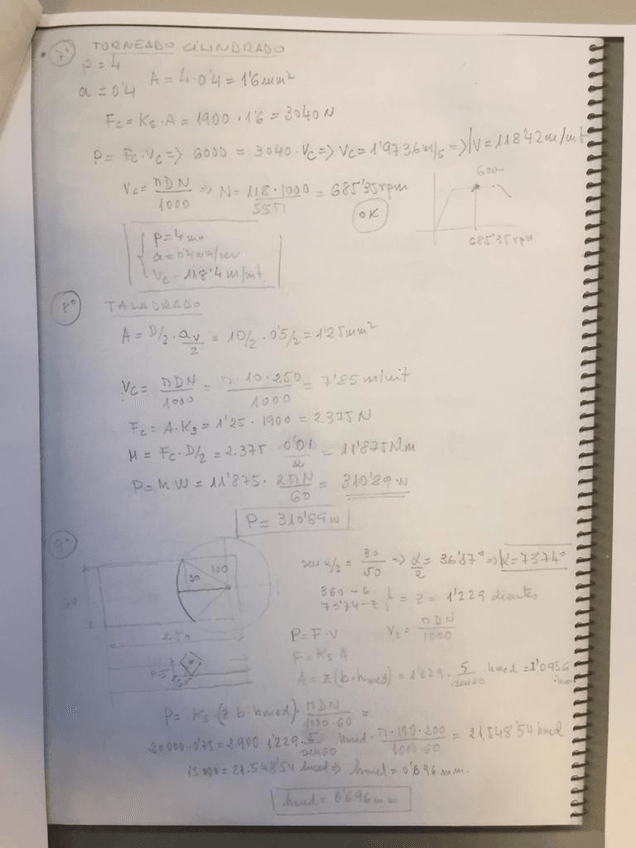 7º TORNEADO CILINDRADO
p = 4
a = 0'4 A = 4·0'4 = 1'6 mm²
Fc = Ks·A = 1900·1'6 = 3040 N
P = Fc·Vc => 6000 = 3040·Vc => Vc = 1'9736 m/s => V = 118'42 m/mt
Vc = πDN/1000 => N = 118·1000/55π = 685'35 rpm
OK
685'35 rpm
p = 4 mm
a = 0'4 mm/rev
Vc = 118'4 m/mt
8º TALADRADO
A = D/2 · av/2 = 10/2 · 0'5/2 = 1'25 mm²
Vc = πDN/1000 = π·10·250/1000 = 7'85 m/mit
Fc = A·Ks = 1'25·1900 = 2375 N
M = Fc·D/2 = 2.375 0'01/2 = 11'875 Nm
P = M W = 11'875· 2πN/60 = 310'89 w
P = 310'89 w
9º
30 100
250
sen α/2 = 30/50 => α/2 = 36'87° => α = 73'74°
360 - 6
73'74 - z
= z = 1'229 dientes
P = F·V Vc = πDN/1000
F = Ks A
A = z(b·hmed) = 1'229· 5/sen60 hmed
P = Ks·(z b·hmed) πDN/1000·60 =
20000·0'75 = 2900 1'229· 5/sen60 hmed · π·190·200/1000·60 = 21.548'54 hmed
15000 = 21.548'54 hmed => hmed = 0'696 mm.
hmed = 0'696 mm